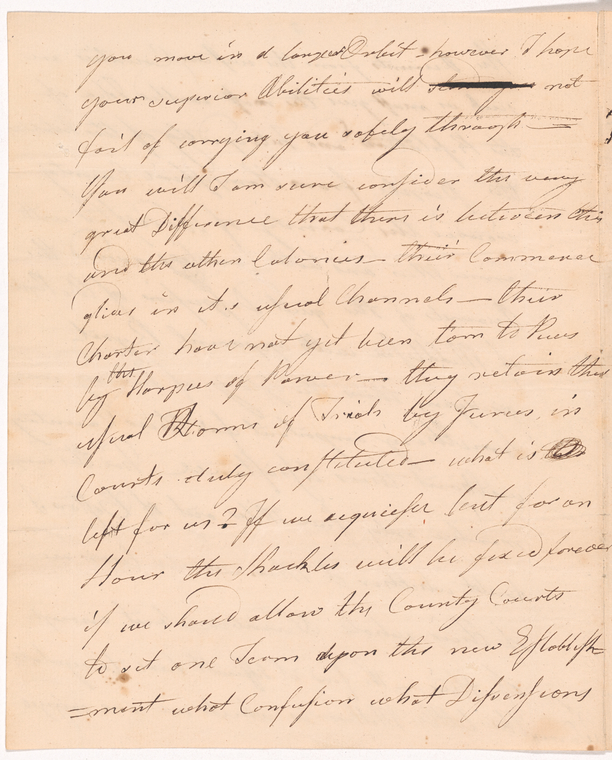 you move in a larger Orbit - however I hope
your superior Abilities will not
fail of carrying you safely through —
You will I am sure consider the very
great Difference that there is between this
and the other Colonies — their Commerce
glides in its usual Channels — their
Charter have not yet been torn to Pieces
by the Harpies of Power — they retain their
usual Forms of Trials by Juries in
Courts duly constituted — what is
left for us? If we acquiesce but for an
Hour the Shackles will be fixed forever
if we should allow the County Courts
to set one Team upon the new Establish
=ment what Confusion what Dissensions